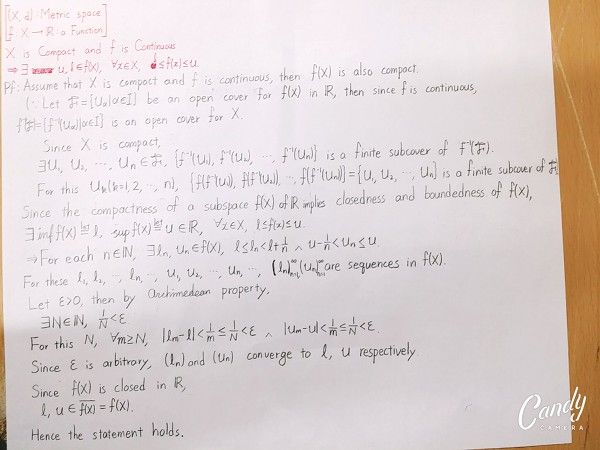 (X, d) : Metric space
f : X → ℝ : a Function
X is Compact and f is Continuous
⇒ ∃ u, l ∈ f(X), ∀x∈X, l ≤ f(x) ≤ u.
Pf: Assume that X is compact and f is continuous, then f(X) is also compact.
(∵ Let ℱ = {Uα | α∈I} be an open cover for f(X) in ℝ, then since f is continuous,
f⁻¹(ℱ) = {f⁻¹(Uα) | α∈I} is an open cover for X.
Since X is compact,
∃U₁, U₂, ⋯, Uₙ ∈ ℱ, {f⁻¹(U₁), f⁻¹(U₂), ⋯, f⁻¹(Uₙ)} is a finite subcover of f⁻¹(ℱ).
For this Uₖ(k=1, 2, ⋯, n), {f(f⁻¹(U₁)), f(f⁻¹(U₂)), ⋯, f(f⁻¹(Uₙ))} = {U₁, U₂, ⋯, Uₙ} is a finite subcover of ℱ.
Since the compactness of a subspace f(X) of ℝ implies closedness and boundedness of f(X),
∃ inf f(X) ≝ l, sup f(X) ≝ u ∈ ℝ, ∀x∈X, l ≤ f(x) ≤ u.
⇒ For each n∈ℕ, ∃lₙ, uₙ ∈ f(X), l ≤ lₙ < l + 1/n ∧ u − 1/n < uₙ ≤ u.
For these l₁, l₂, ⋯, lₙ, ⋯, u₁, u₂, ⋯, uₙ, ⋯, (lₙ)ₙ₌₁^∞, (uₙ)ₙ₌₁^∞ are sequences in f(X).
Let ε>0, then by Archimedean property,
∃N∈ℕ, 1/N < ε.
For this N, ∀m≥N, |lₘ − l| < 1/m ≤ 1/N < ε ∧ |uₘ − u| < 1/m ≤ 1/N < ε.
Since ε is arbitrary, (lₙ) and (uₙ) converge to l, u respectively.
Since f(X) is closed in ℝ,
l, u ∈ \overline{f(X)} = f(X).
Hence the statement holds.
Candy
CAMERA